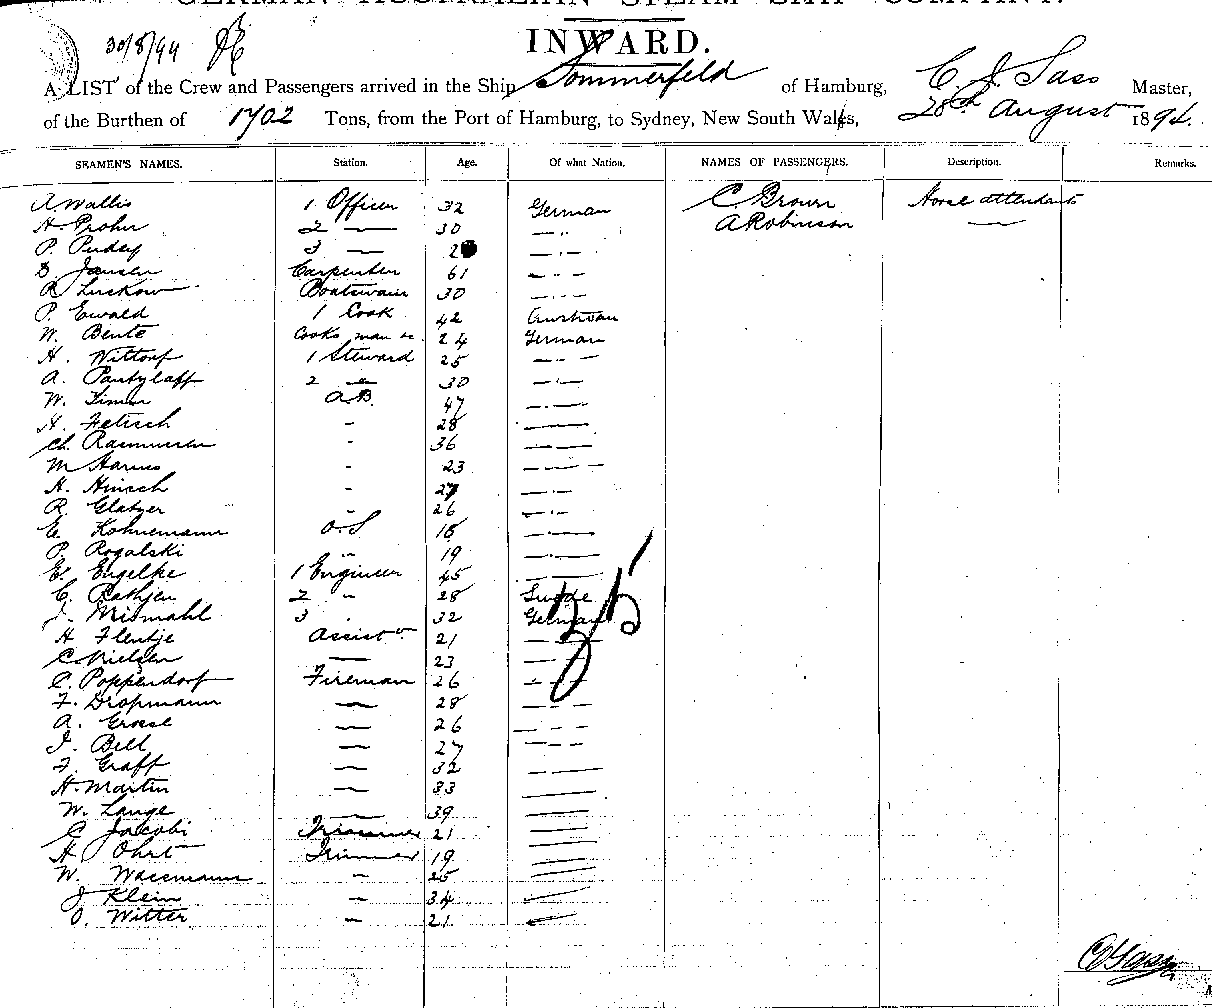 GERMAN AUSTRALIAN STEAM SHIP COMPANY.
30/8/94
INWARD.
A LIST of the Crew and Passengers arrived in the Ship Sommerfeld of Hamburg, C J Sass Master,
of the Burthen of 1702 Tons, from the Port of Hamburg, to Sydney, New South Wales, 28th August 1894.
SEAMEN'S NAMES. Station. Age. Of what Nation. NAMES OF PASSENGERS. Description. Remarks.
A Wallis 1 Officer 32 German C Brown Horse attendants
H Prohn 2 — 30 — " — A Robinson —
P. Pudey 3 — 2 — " —
Jansen Carpenter 61 — " —
R Luckow Boatswain 30 — " —
P. Ewald 1 Cook 42 Austrian
W. Bente Cooks man 24 German
H. Wittorf 1 Steward 25 — " —
A. Pantzlaff 2 — 30 — " —
W. Timm A.B. 47 — " —
H. Fetisch " 28 — " —
Ch. Rasmussen " 36 — " —
M Harms " 23 — " —
H. Hinsch " 27 — " —
R. Glatzer " 26 — " —
E. Kohnemann O.S 18 — " —
P. Rogalski " 19 — " —
E. Engelke 1 Engineer 45 —
C. Rathjen 2 " 28 Swede
J. Mismahl 3 " 32 German
H Flentje Assist 21 — " —
C Nielsen — 23 — " —
C. Poppendorf Fireman 26 — " —
F. Dropmann — 28 — " —
A. Grosse — 26 — " —
J. Bell — 27 — " —
F. Graff — 32 —
H. Martin — 33 —
W. Lange — 39 —
C Jacobi Trimmer 21 —
H Ohrt Trimmer 19 —
W. Wassmann — 25 —
J Klein — 34 —
O. Witter — 21 —
35
C J Sass